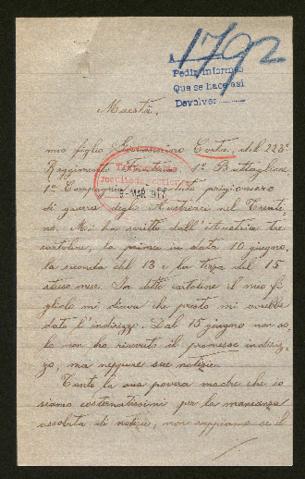 1792
Pedir informes
Que se hace así
Devolver
Maestà,
mio figlio Giovannino Corta, del 223º
Reggimento Fanteria, 1º Battaglione,
1ª Compagnia
prigioniero
di guerra degli Austriaci nel Trenti-
no. Mi ha scritto dall'Austria tre
cartoline, la prima in data 10 giugno,
la seconda del 13 e la terza del 15
stesso mese. In dette cartoline il mio fi-
gliolo mi diceva che presto mi avrebbe
dato l'indirizzo. Dal 15 giugno non so-
lo non ho ricevuto il promesso indiriz-
zo, ma neppure sue notizie.
Tanto la sua povera madre che io
siamo costernatissimi per la mancanza
assoluta di notizie, non sappiamo se il